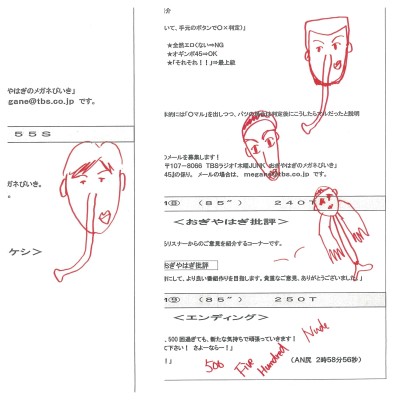 やはぎのメガネびいき」
gane@tbs.co.jp です。
55S
ガネびいき。
ケシ>
いて、手元のボタンで○×判定♪」
★全然エロくない⇒NG
★オギンポ45⇒OK
★「それそれ！！」⇒最上級
メールを募集します！
〒107-8066 TBSラジオ「木曜JUNK おぎやはぎのメガネびいき」
45』の係り。メールの場合は、megane@tbs.co.jp
⑱ (85") 240T
<おぎやはぎ批評>
リスナーからのご意見を紹介するコーナーです。
おぎやはぎ批評
にして、より良い番組作りを目指します。貴重なご意見、ありがとうございました。」
⑲ (85") 250T
<エンディング>
500回過ぎても、新たな気持ちで頑張っていきます！
下さい！ さよーならー！」
(AN尻 2時58分56秒)
500 Five Hundred Nude